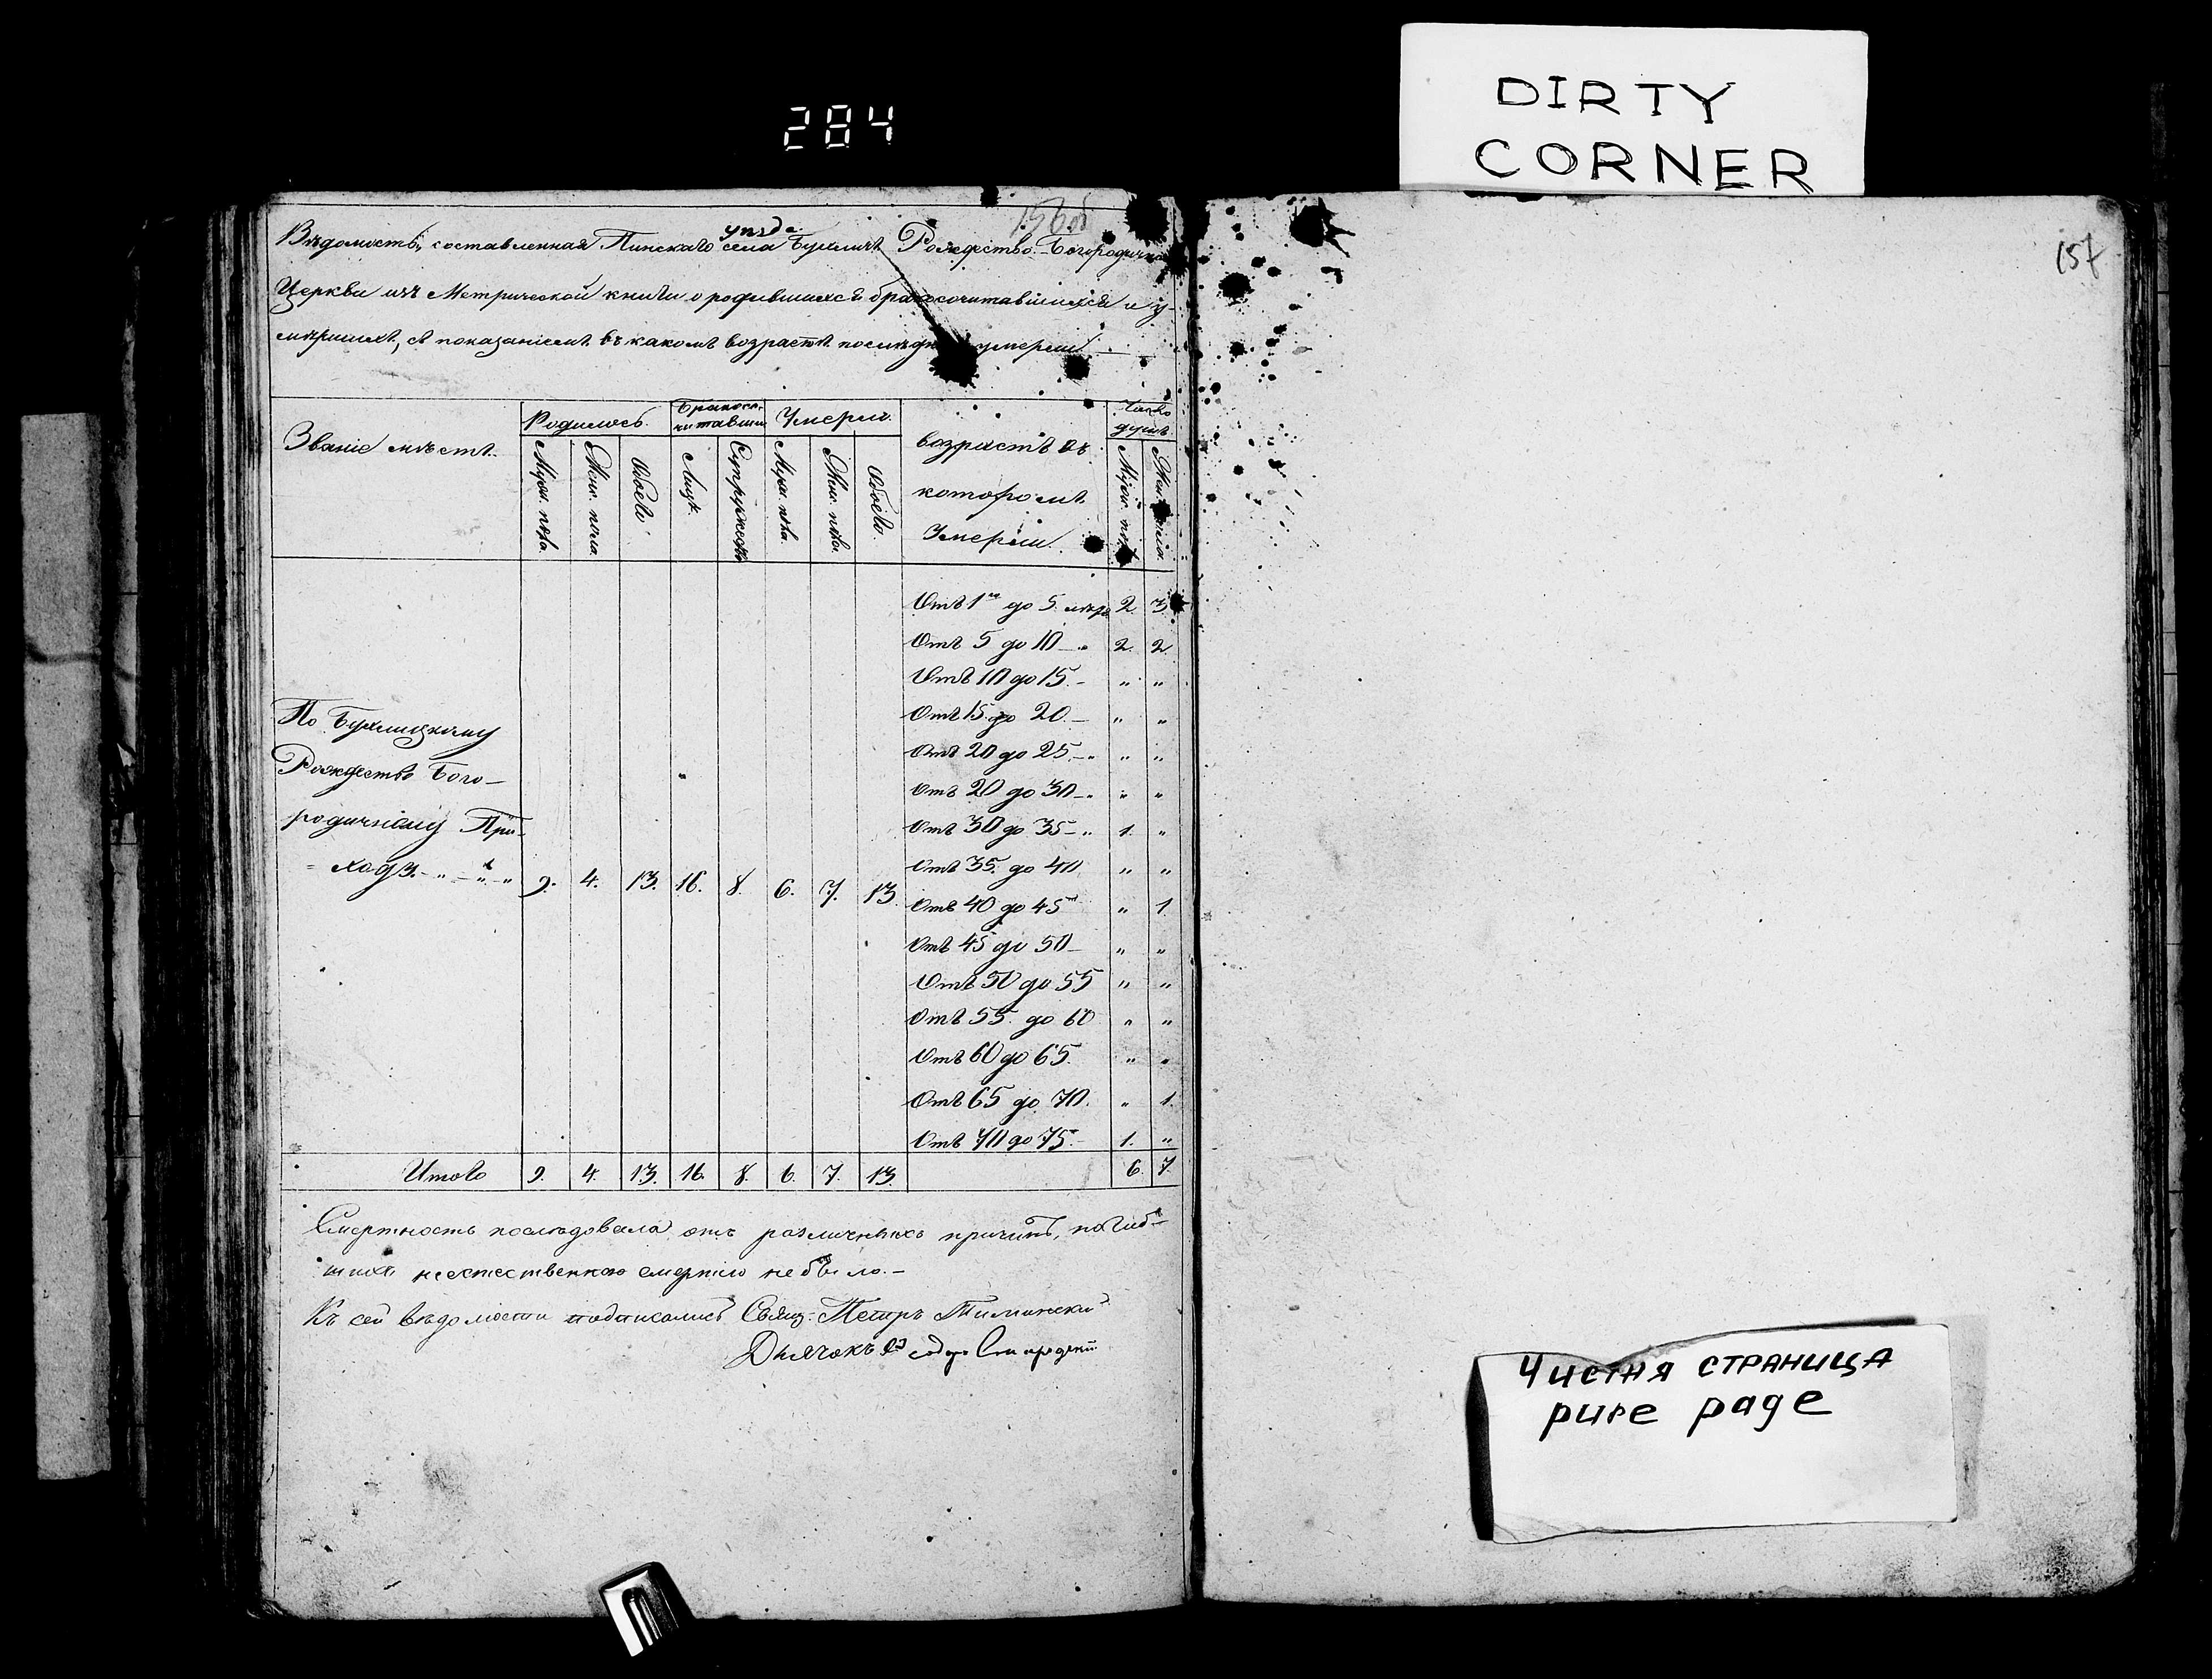 284
DIRTY
CORNER
156об
157
уѣзда
Вѣдомость, составленная Пинскаго села Бухличъ Рождество-Богородичной
Церкви изъ Метрической книги о родившихся бракосочитавшихся и у-
мѣршихъ, съ показаніемъ въ какомъ возрастѣ послѣдніе умерли
Званіе мѣстъ.
Родилось.
Бракосо-
читавших
Умерли.
возрастъ въ
которомъ
Умерли.
Число
душъ.
Муж. пола.
Жен. пола.
Обоего.
Лицъ.
Супружествъ
Муж. пола.
Жен. пола.
Обоего.
Муж. пола
Жен. пола.
Отъ 1го до 5 лѣтъ 2. 3
Отъ 5 до 10 — „ 2. 2
Отъ 10 до 15. — „ „
Отъ 15 до 20. — „ „
Отъ 20 до 25. — „ „ „
Отъ 20 до 30 — „ „ „
Отъ 30 до 35 — „ 1. „
Отъ 35. до 40 „ „
Отъ 40 до 45 „ 1.
Отъ 45 до 50 — „ „
Отъ 50 до 55 „ „
Отъ 55. до 60 „ „
Отъ 60 до 65. „ „
Отъ 65 до 70. „ 1.
Отъ 70 до 75. — 1. „
По Бухлицкому
Рождество Бого-
родичному При-
ходу. — „ — „ „ 9. 4. 13. 16. 8. 6. 7. 13.
Итого 9. 4. 13. 16. 8. 6. 7. 13. 6. 7.
Смертность послѣдовала отъ различныхъ причинъ, погиб-
шихъ неестественною смертію небыло. —
Къ сей вѣдомости подписались Свящ: Петръ
Дьячокъ
Чистая СТРАНИЦА
pure page